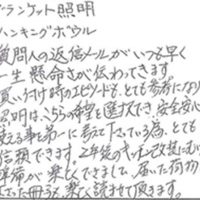 ランケット照明
ハンキングボウル
質問への返信メールがいつも早く
一生懸命さが伝わってきます
買い付け時のエピソードも、とても参考になり
照明は、こちらの希望も選択でき、安全安心
使える事を第一に考えて下さっている為、とても
信頼できます。2年後のキッチン改装にむけ
準備が楽しくできまして、届いた荷物
冊子も、楽しく読ませて頂きます。